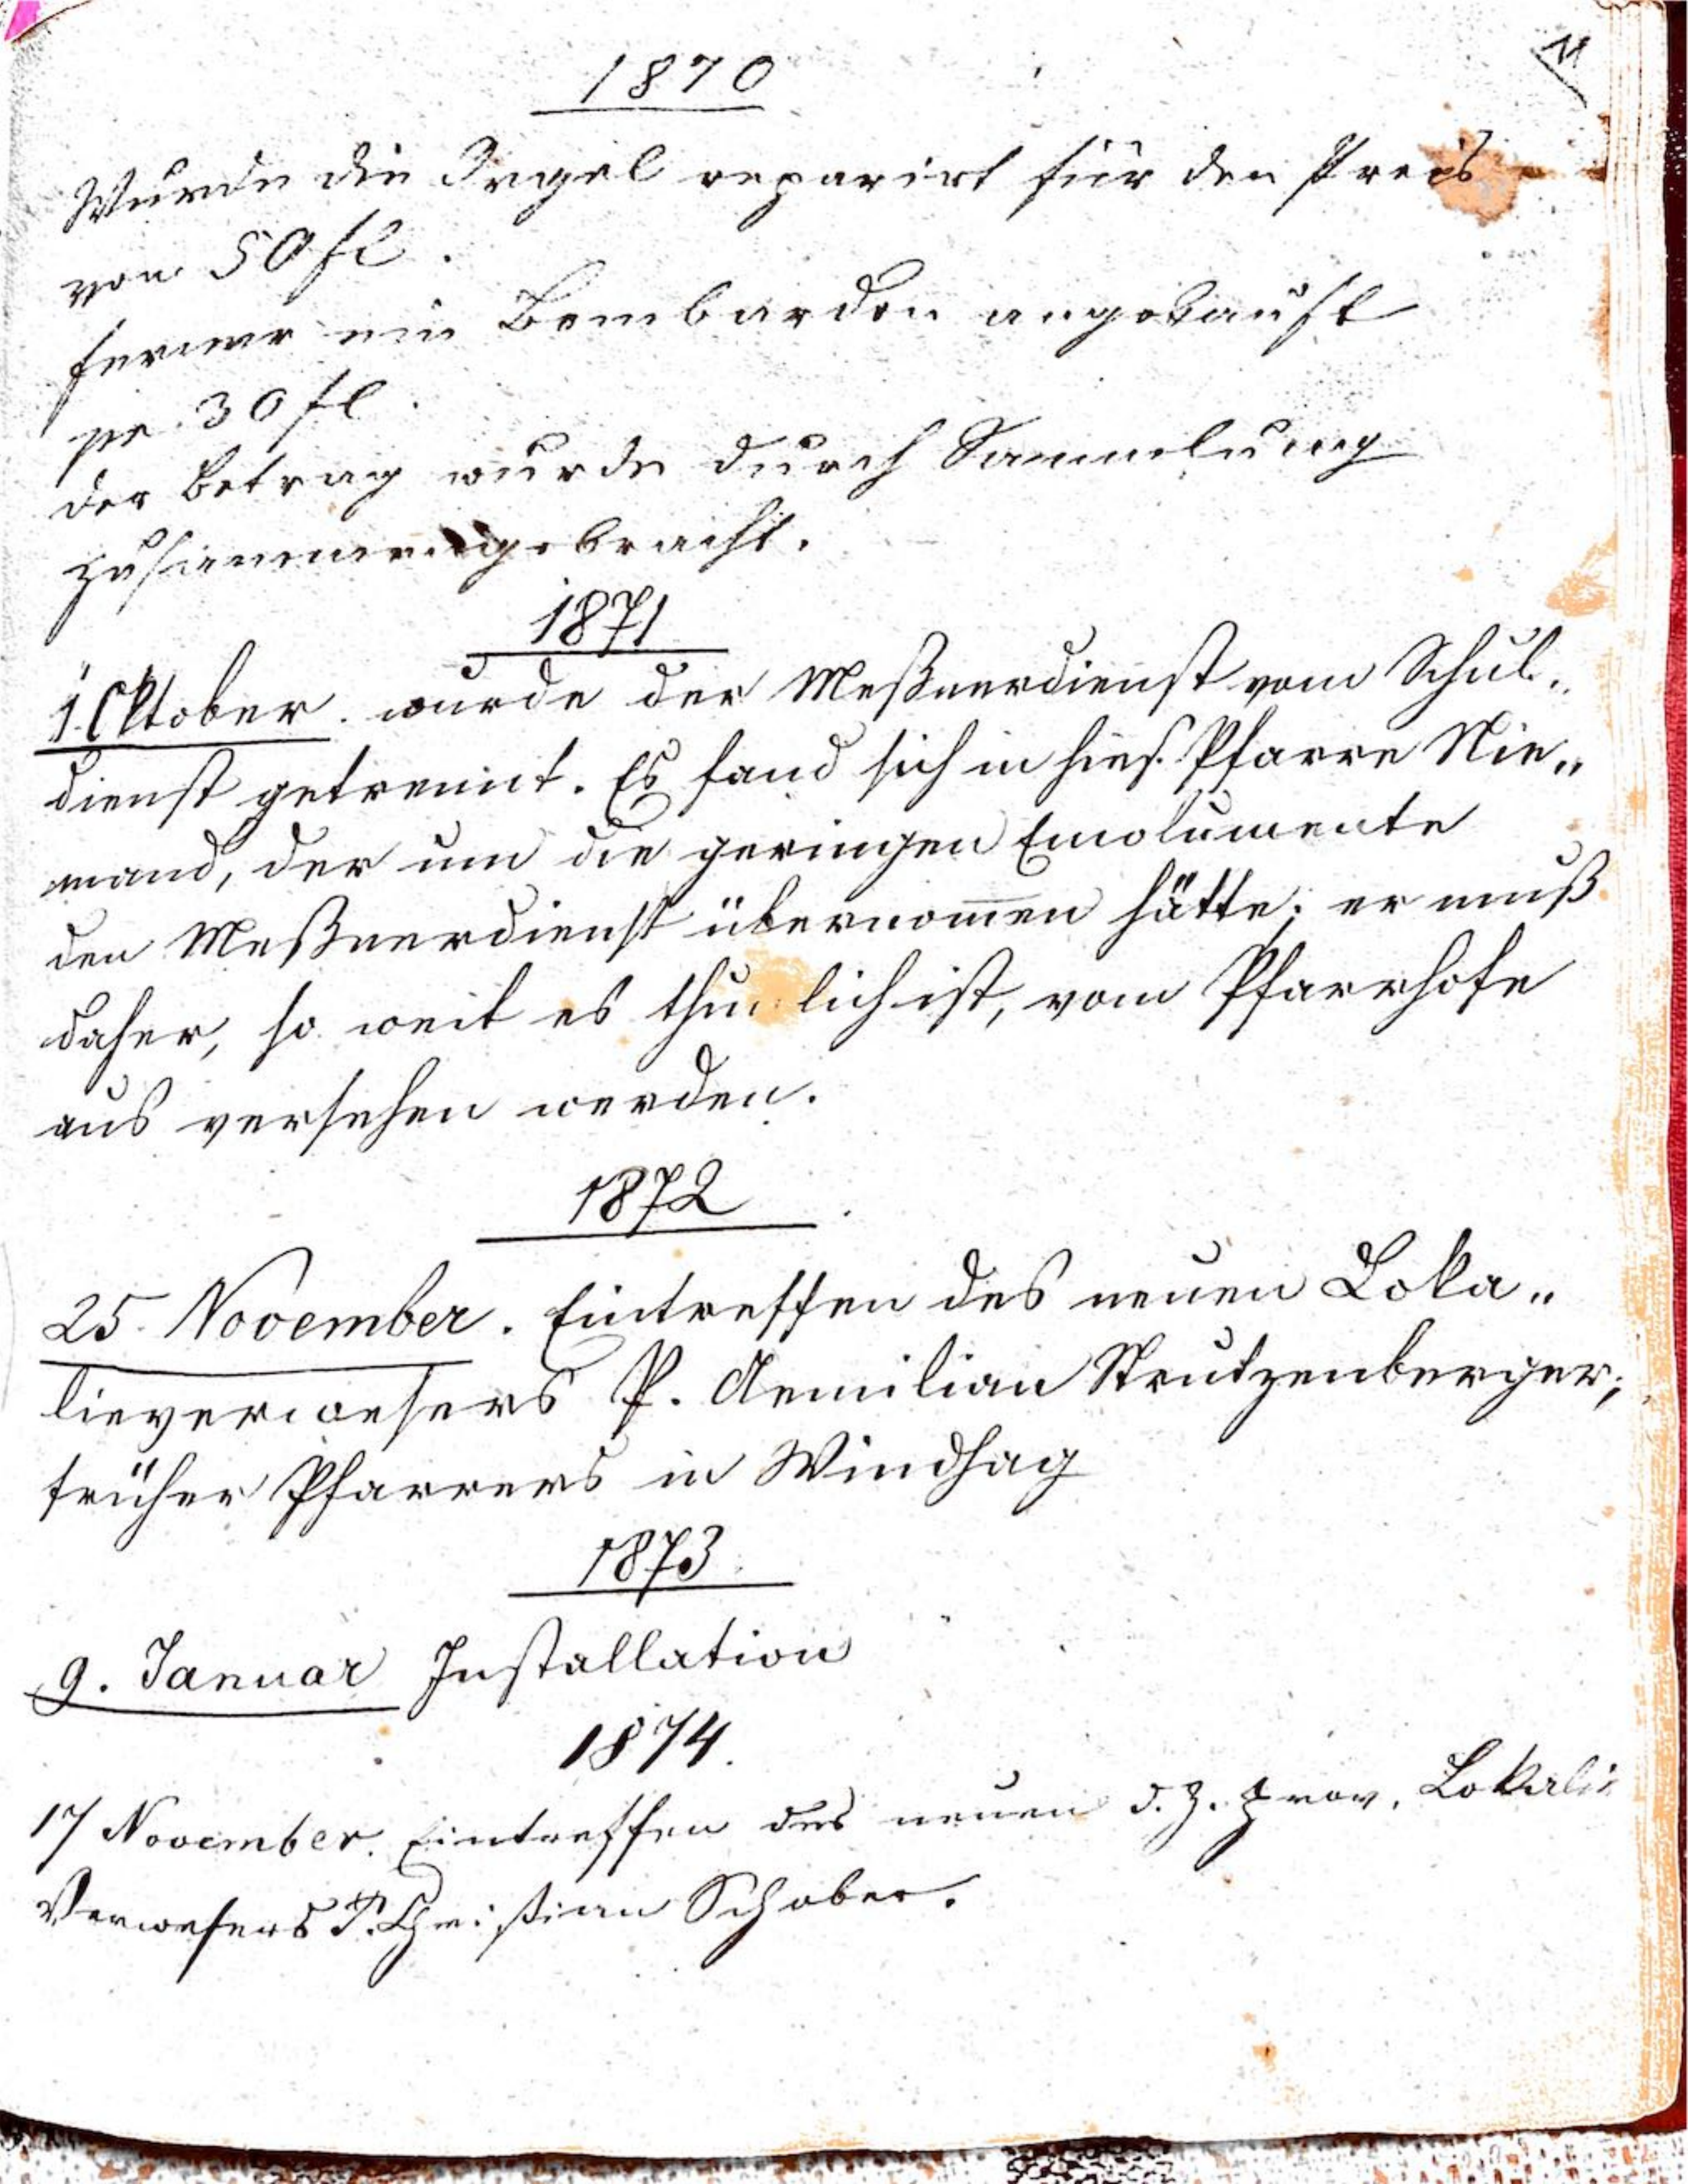 11
1870
Wurde die Orgel reparirt für den Preis
von 50 fl.
ferner ein Bombardon angekauft
pr 30 fl.
der Betrag wurde durch Sammlung
zusammengebracht.
1871
1. Oktober. wurde der Meßnerdienst vom Schul„
dienst getrennt. Es fand sich in hies. Pfarre Nie„
mand, der um die geringen Emolumente
den Meßnerdienst übernom̅en hätte; er muß
daher, so weit es thunlich ist, vom Pfarrhofe
aus versehen werden.
1872
25. November. Eintreffen des neuen Loka„
lieverwesers P. Aemilian Strutzenberger;
früher Pfarrers in Windhag
1873.
9. Januar Installation
1874.
17 November. Eintreffen des neuen d. Z. prov. Lokalie
Verwesers P. Christian Schober.